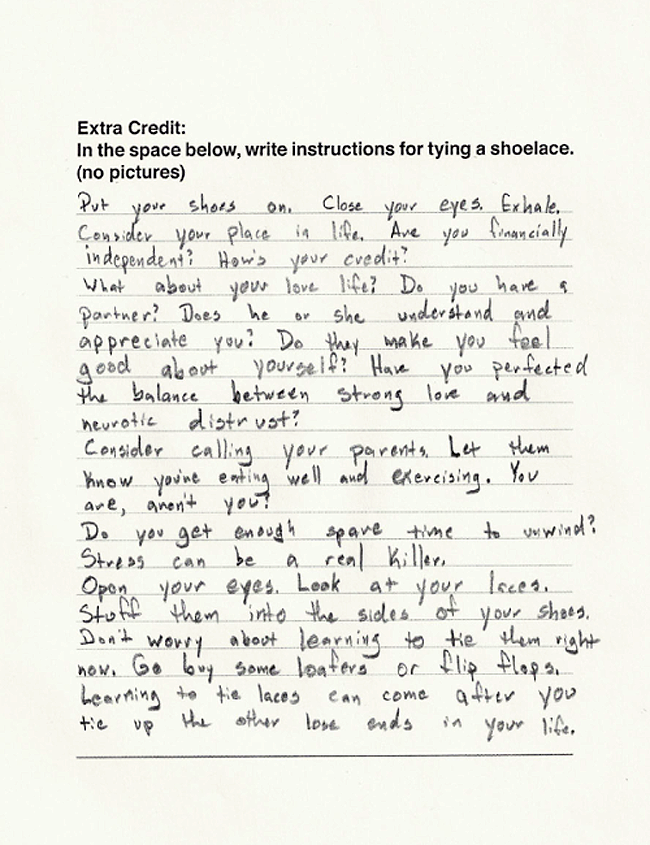 Extra Credit:
In the space below, write instructions for tying a shoelace.
(no pictures)
Put your shoes on. Close your eyes. Exhale.
Consider your place in life. Are you financially
independent? How's your credit?
What about your love life? Do you have a
partner? Does he or she understand and
appreciate you? Do they make you feel
good about yourself? Have you perfected
the balance between strong love and
neurotic distrust?
Consider calling your parents. Let them
know you're eating well and exercising. You
are, aren't you?
Do you get enough spare time to unwind?
Stress can be a real killer.
Open your eyes. Look at your laces.
Stuff them into the sides of your shoes.
Don't worry about learning to tie them right
now. Go buy some loafers or flip flops.
Learning to tie laces can come after you
tie up the other lose ends in your life.